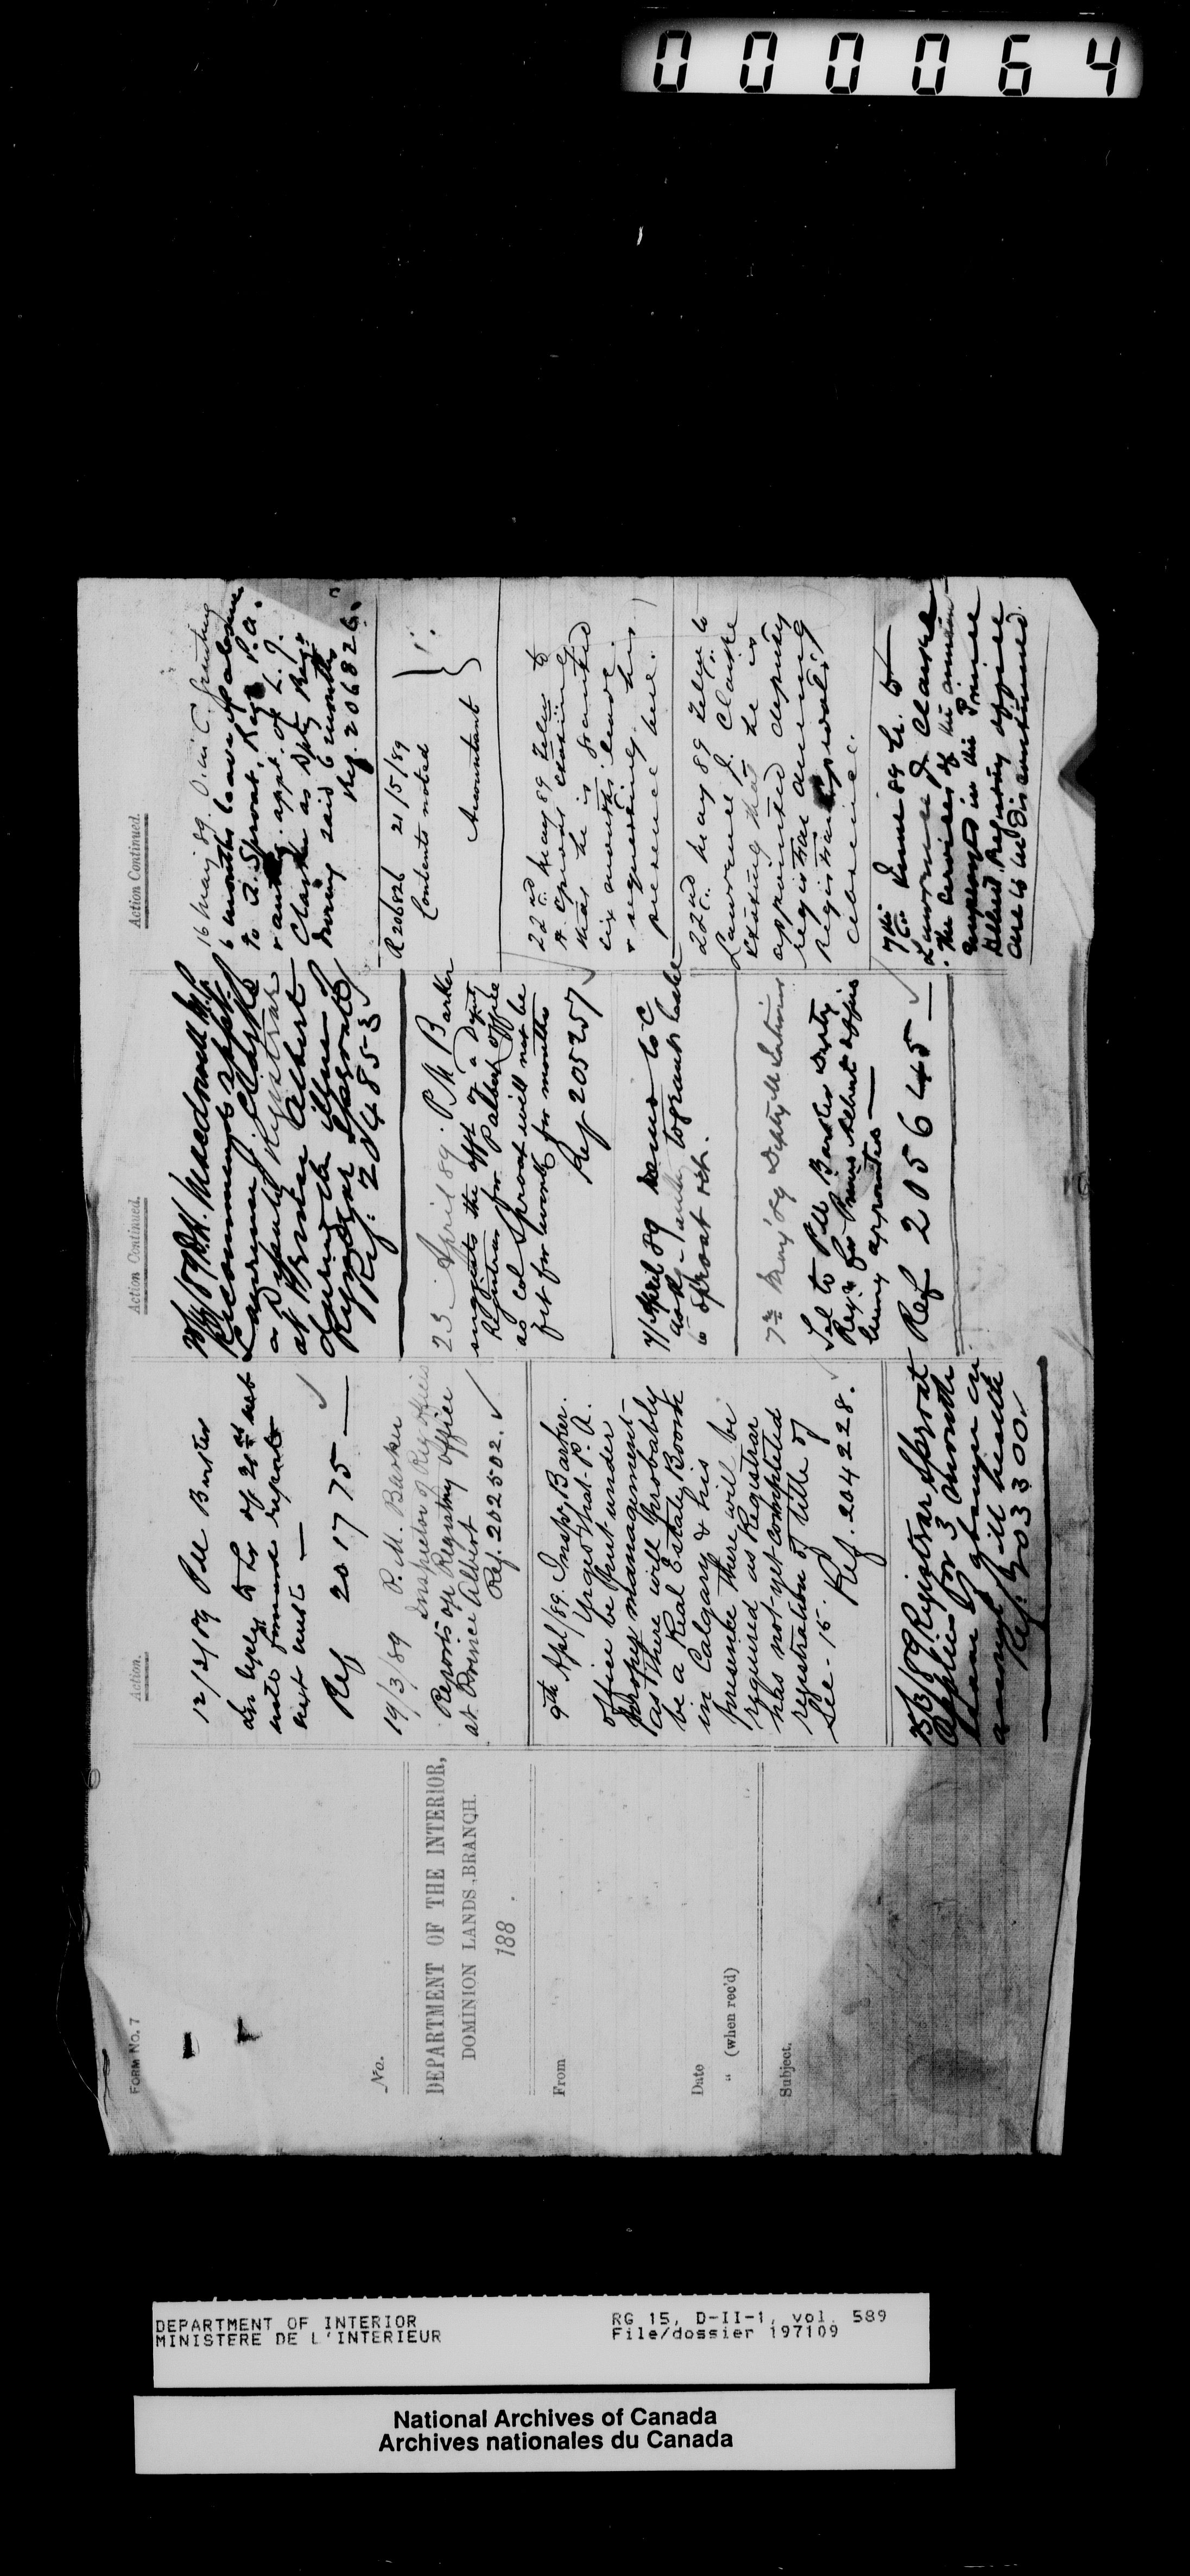 000064
FORM No. 7
No.
DEPARTMENT OF THE INTERIOR,
DOMINION LANDS BRANCH.
188
From
Date
" (when rec'd)
Subject.
Action.
12/3/89 P M Barker
in reply to Lr of 21st ult
will forward report
next week —
Ref 201775 —
19/3/89 P. M. Barker
Inspector of Reg Offices
Reports on Registry Office
at Prince Albert
Ref. 202502. ✓
9th Apl/89. Inspr Barker.
Urges that P. A.
office be put under
proper management
as there will probably
be a Real Estate Boom
in Calgary & his
presence there will be
required as Registrar
has not yet completed
registration of title of
Sec - 15. Ref. 204228. ✓
25/3/89 Registrar Sproat
Applies for 3 months
leave of absence on
account of ill health
Ref. 203300.
Action Continued.
D. H. Macdowall M.P.
Recommends appt. of
Lawrence J Clarke
as Deputy Registrar
at Prince Albert
during the illness of
Registrar Sproat
Ref. 204853
23 April 89. P M Barker
suggests the appt of a Deputy
Registrar for P albert office
as Col Sproat will not be
fit for work for months
Ref 205257
April 89 Memo to C
to grant leave
to Sproat
7th May '89 Depty M Interior
Tel to P M Barker Depty
Regr for Prince Albert office
being appointed —
Ref 205645 —
Action Continued.
16 May 89. O. in C. granting
6 months leave of absence
to A. Sproat, Regr P. A.
& appt. of L. J.
Clarke as Dpty Regr
during said 6 months
Ref. 206826.
R 206826 21/5/89
Contents noted
Accountant
22nd May 89 Letter to
A Sproat stating
that he is granted
six months leave
& requesting his
presence here.
22nd May 89 Letter to
Lawrence J. Clarke
stating that he is
appointed deputy
registrar during
Registrar Sproat's
absence.
7th June 89 Lr. to
Lawrence J Clarke
the services of the
employed in the Prince
Albert Registry office
are to be discontinued.
DEPARTMENT OF INTERIOR
MINISTERE DE L'INTERIEUR
RG 15, D-II-1, vol. 589
File/dossier 197109
National Archives of Canada
Archives nationales du Canada